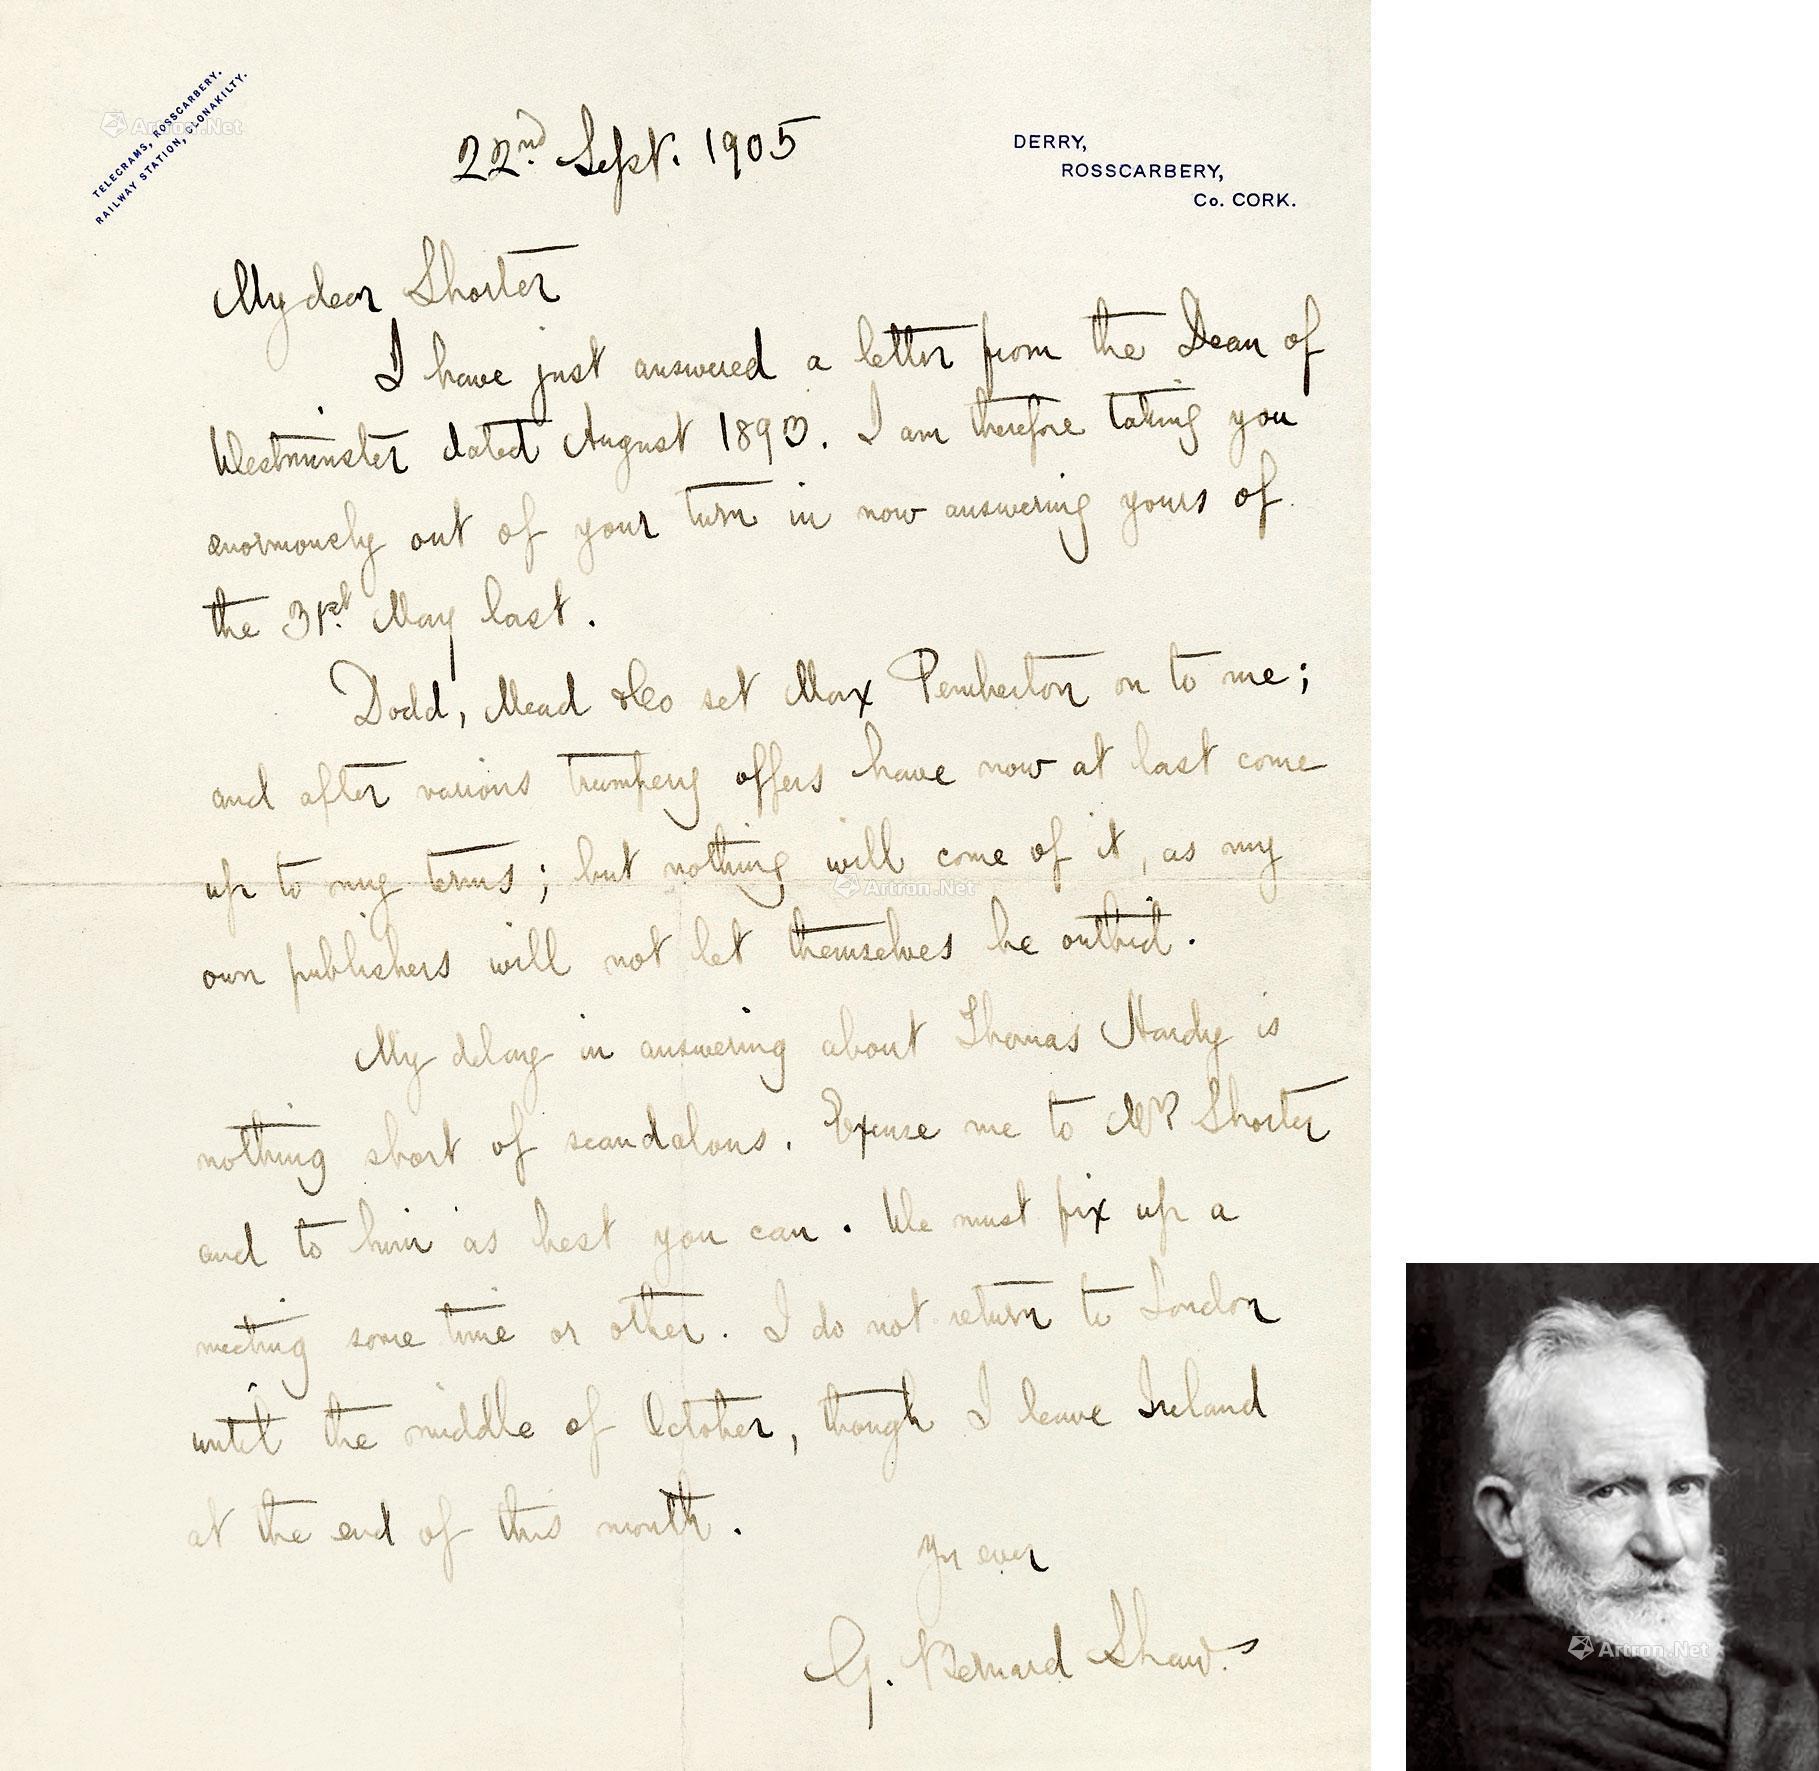 TELEGRAMS, ROSSCARBERY.
RAILWAY STATION, CLONAKILTY.
22nd Sept. 1905
DERRY,
ROSSCARBERY,
Co. CORK.
My dear Shorter
I have just answered a letter from the Dean of
Westminster dated August 1893. I am therefore taking you
enormously out of your turn in now answering yours of
the 31st May last.
Dodd, Mead & Co set Max Pemberton on to me;
and after various trumpery offers have now at last come
up to my terms; but nothing will come of it, as my
own publishers will not let themselves be outbid.
My delay in answering about Thomas Hardy is
nothing short of scandalous. Excuse me to Mrs Shorter
and to him as best you can. We must fix up a
meeting some time or other. I do not return to London
until the middle of October, though I leave Ireland
at the end of this month.
Yrs ever
G. Bernard Shaw.
Artron.Net
Artron.Net
Artron.Net